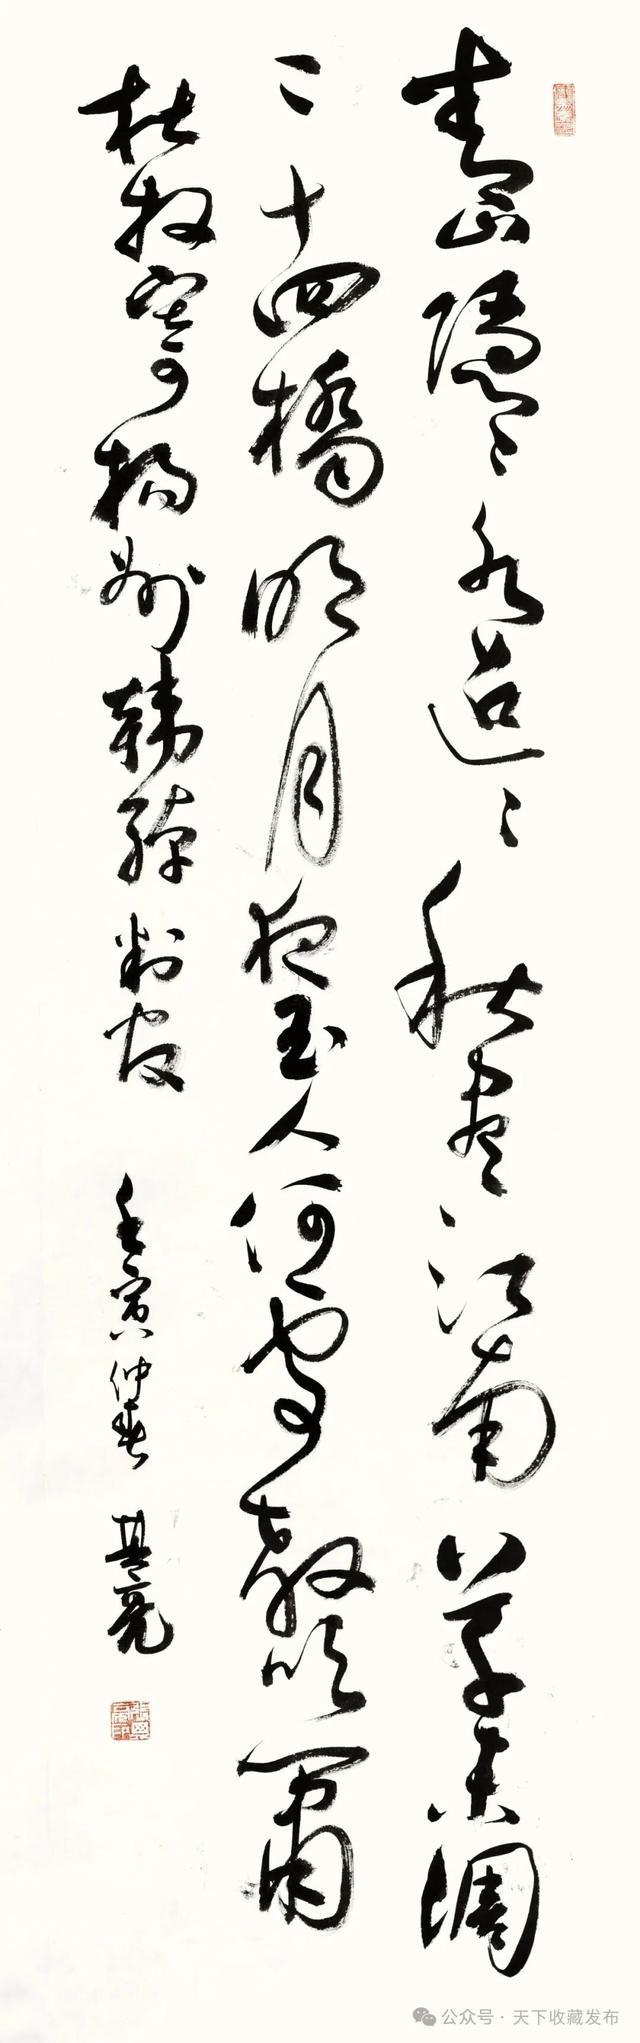 青山隐〻水迢〻秋尽江南草未凋
二十四橋明月夜玉人何處教吹簫
杜牧寄揚州韩绰判官
壬寅仲春 其亮
公众号 · 天下收藏发布